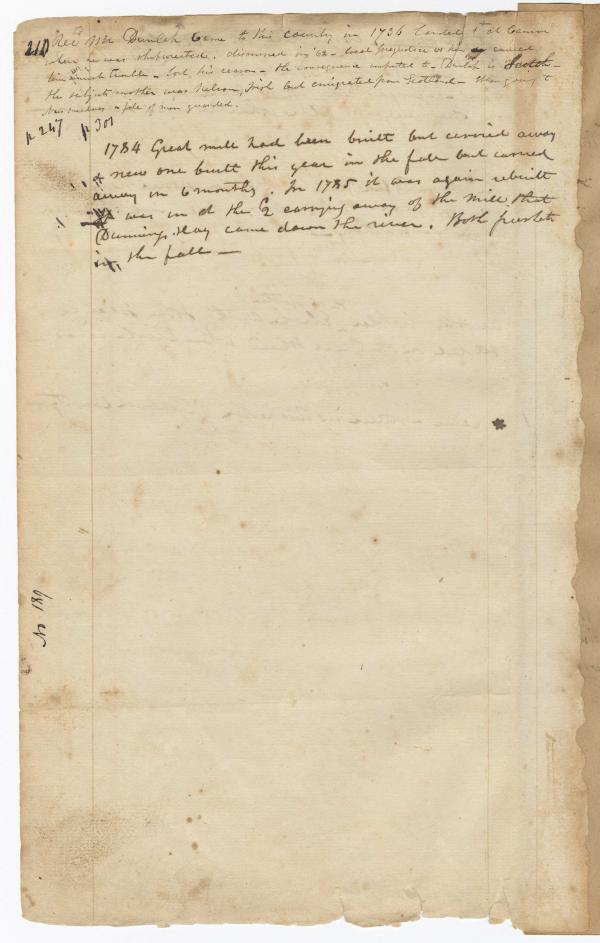 210 Revd Mr Dunlap Came to this country in 1736 landed 1st at Canso
where he was shipwrecked. dismissed in '62 - local prejudice vs him caused
him much trouble - lost his reason - the consequence imputed to - Dunlap is Scotch -
the subjects mother was Nelson, Irish but emigrated from Scotland - then going to
a file of men guarded.
p 247 p 301
1784 Great mill had been built but carried away
& new one built this year in the fall but carried
away in 6 months. In 1785 it was again rebuilt
it was in at the carrying away of the Mill that
Dunnings Hay came down the river. Both freshets
in the fall -
No 189